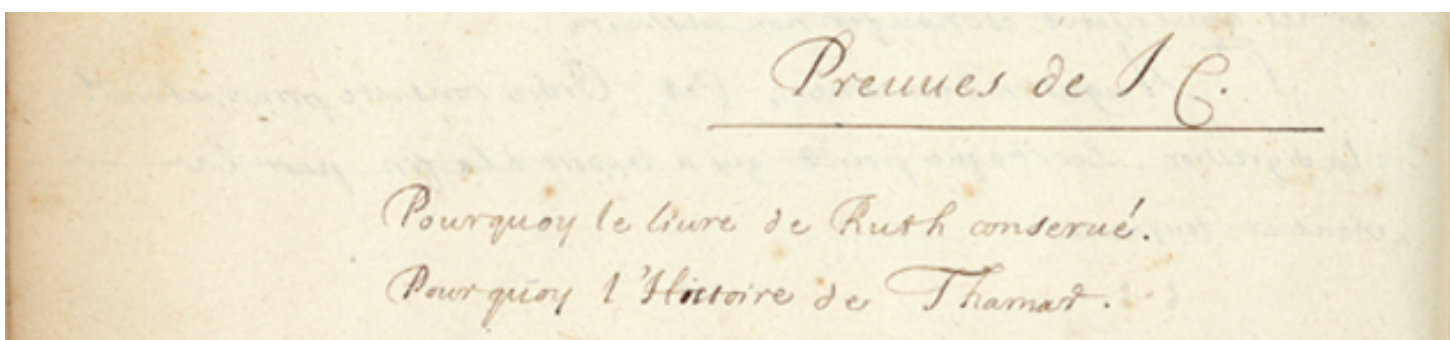 Preuues de J C.
Pourquoy le liure de Ruth conserué.
Pourquoy l'Histoire de Thamar.